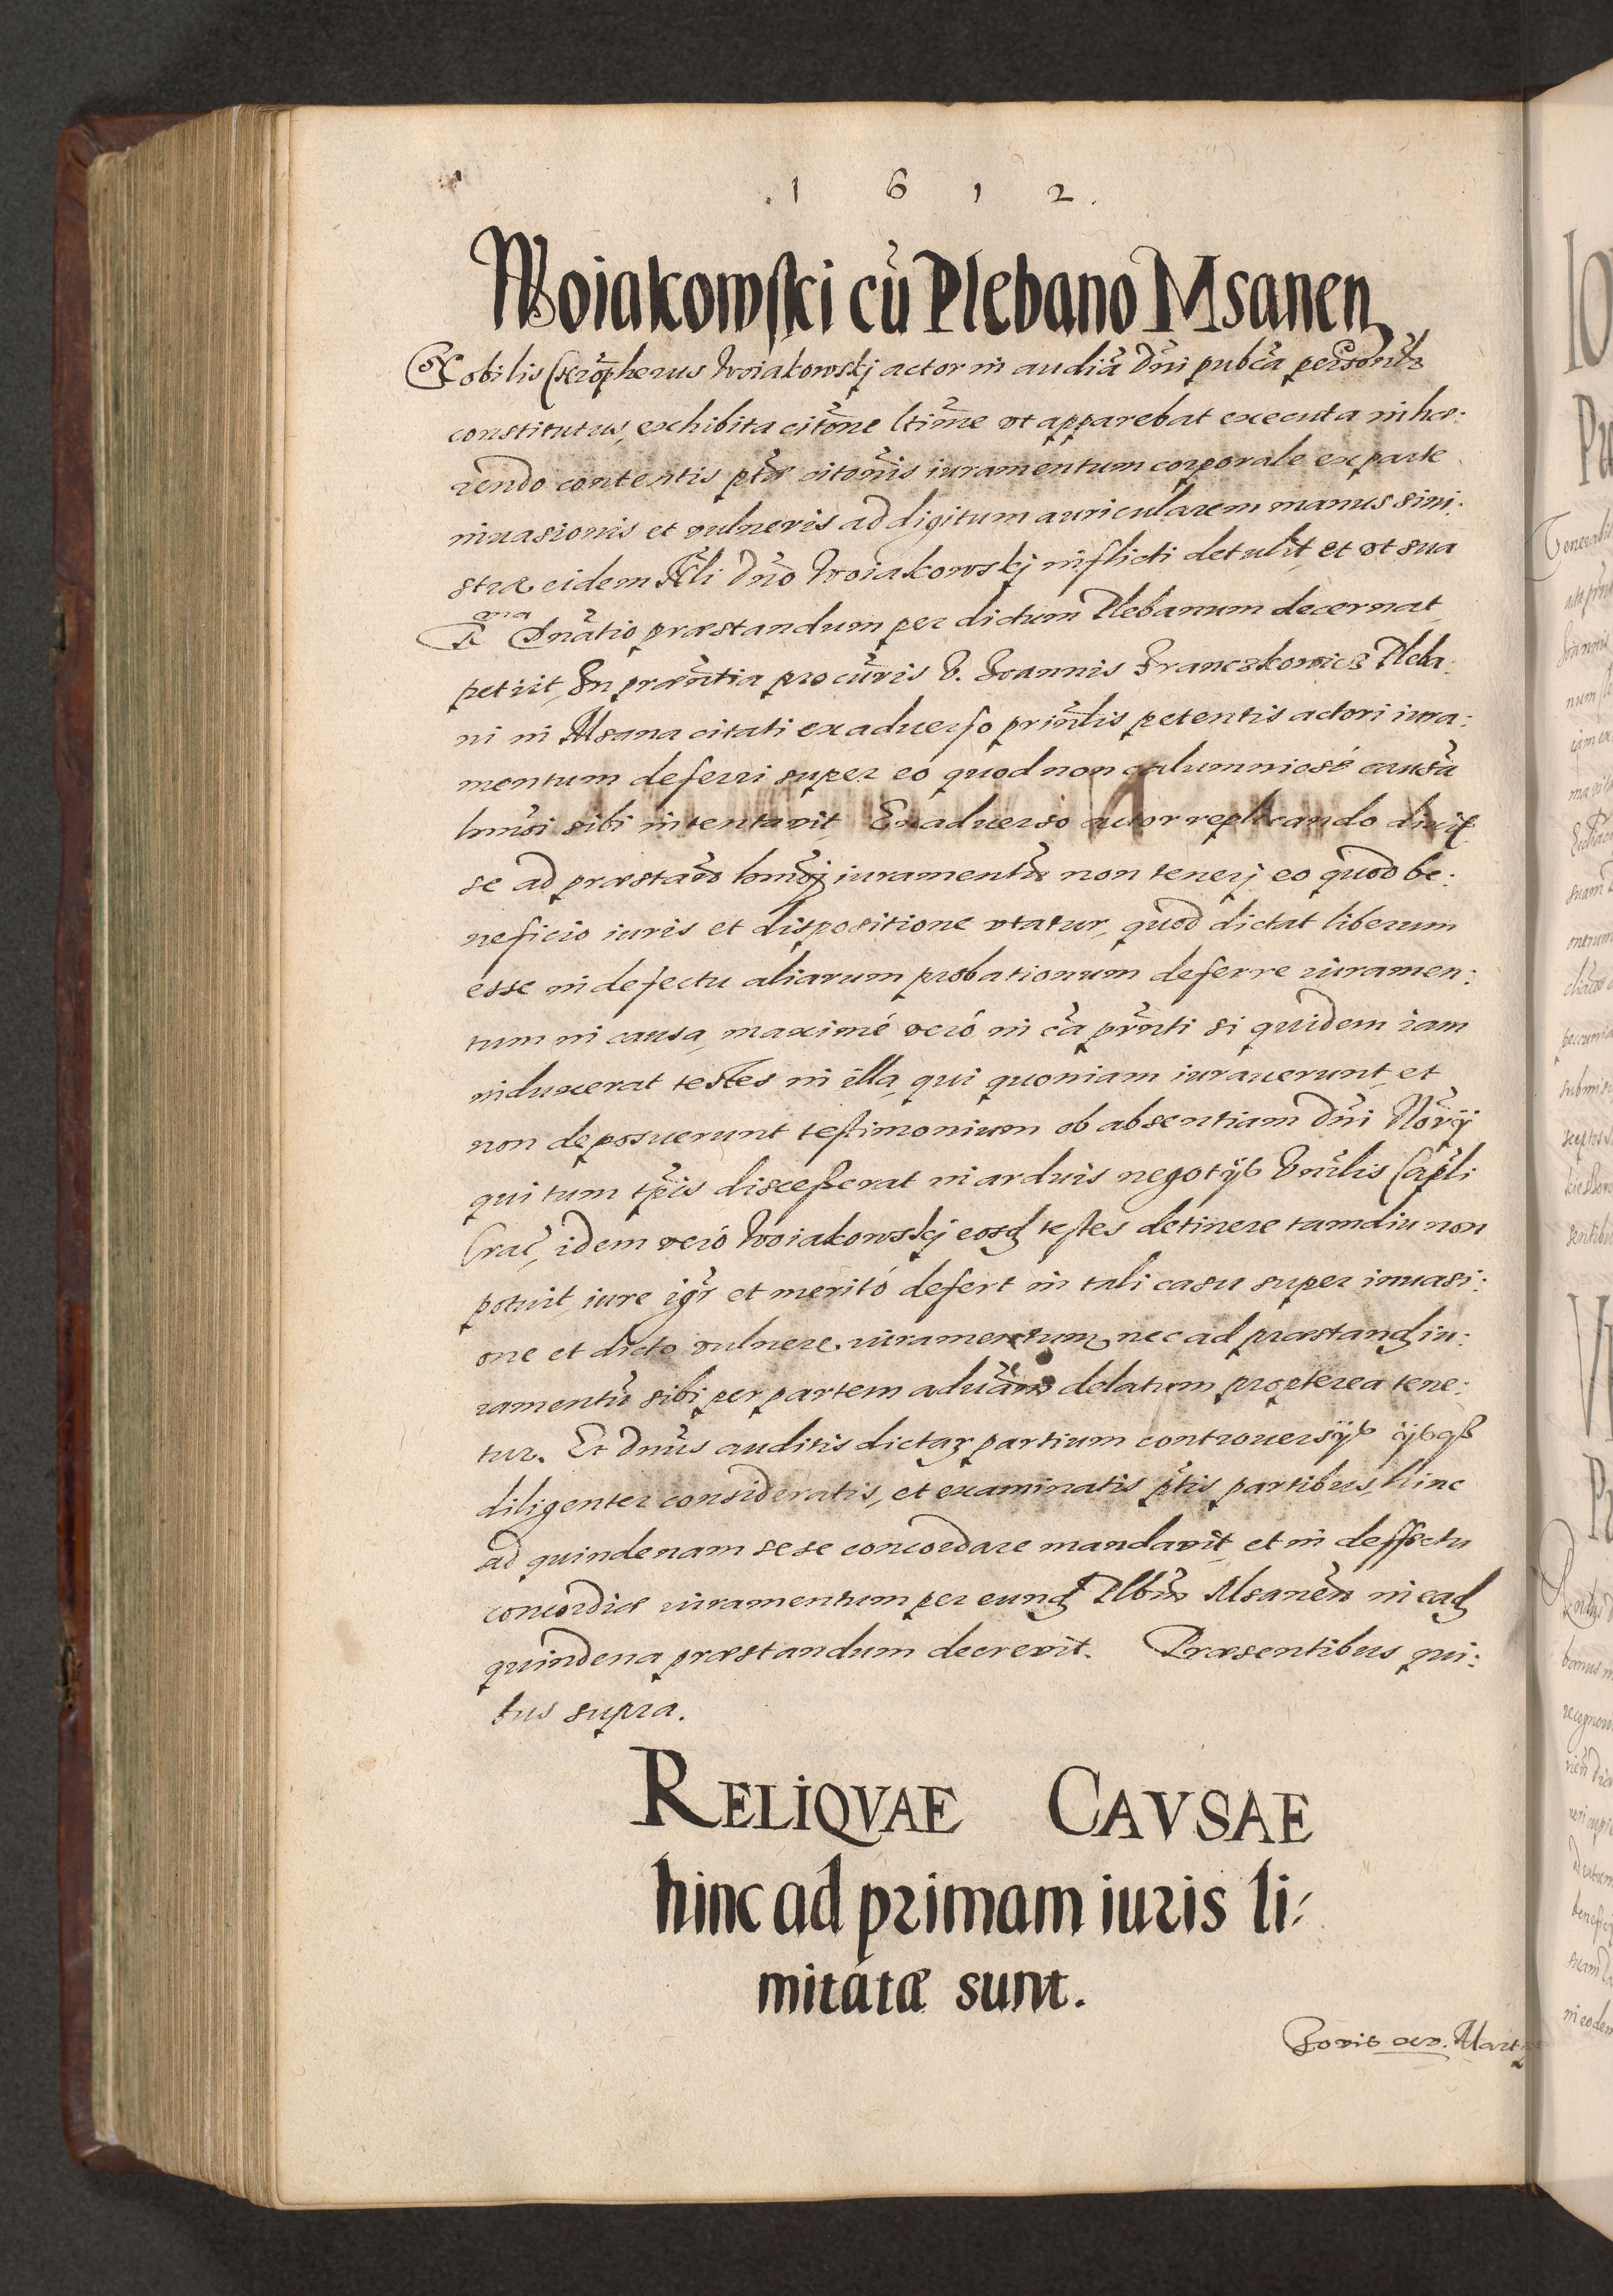 1 6 1 2.
Woiakowski cũ Plebano Msanen
Nobilis Chrõpherus Woiakowskj actor in audiã Dñi pubca personlr
constitutus, exhibita citõne ltime vt apparebat executa inhæ:
rendo contentis ptæ citõnis iuramentum corporale ex parte
inuasionis et vulneris ad digitum auricularem manus sini:
stræ eidem Nli Dño Woiakowskj inflicti detulit, et vt sua
Rma Dnãtio præstandum per dictum Plebanum decernat
petiit, In præntia procuris V. Ioannis Franczkowicz Pleba:
ni in Msana citati ex aduerso prinlis petentis actori iura:
mentum deferri super eo quod non calumniosè causã
hmõi sibi intentauit Ex aduerso actor replicando dixit
se ad præstand hmõj iuramentũ non tenerj eo quod be:
neficio iuris et dispositione vtatur, quod dictat liberum
esse in defectu aliarum probationum deferre iuramen:
tum in causa, maximè verò in cã prnti si quidem iam
induxerat testes in illa, qui quoniam iurauerunt, et
non deposuerunt testimonium ob absentiam Dñi Norij
qui tum tpis discesserat in arduis negotijs Vnrlis Capli
Crac, idem verò Woiakowskj eosd testes detinere tamdiu non
potuit, iure igr et meritò defert in tali casu super inuasi:
one et dicto vulnere iuramentum, nec ad præstand iu:
ramentũ sibi per partem aduãm delatum propterea tene:
tur. Et Dnus auditis dictar partium controuersijs ijsqß
diligenter consideratis, et examinatis ptis partibus, hinc
ad quindenam sese concordare mandauit, et in deffectu
concordiæ iuramentum per eund Plbũm Msanen in ead
quindena præstandum decreuit. Præsentibus qui:
bus supra.
RELIQVAE CAVSAE
hinc ad primam iuris li:
mitatæ sunt.